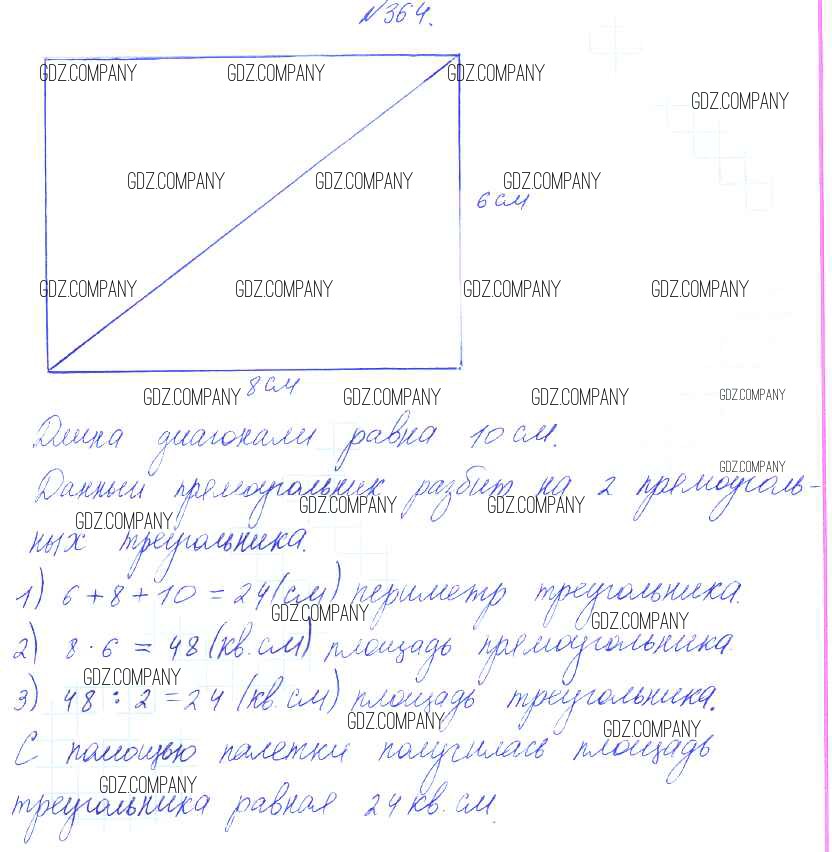 №364.
GDZ.COMPANY GDZ.COMPANY GDZ.COMPANY
GDZ.COMPANY
GDZ.COMPANY GDZ.COMPANY GDZ.COMPANY
6 см
GDZ.COMPANY GDZ.COMPANY GDZ.COMPANY GDZ.COMPANY
8 см
GDZ.COMPANY GDZ.COMPANY GDZ.COMPANY GDZ.COMPANY
Длина диагонали равна 10 см.
GDZ.COMPANY
Данный прямоугольник разбит на 2 прямоуголь-
GDZ.COMPANY GDZ.COMPANY GDZ.COMPANY
ных треугольника.
1) 6 + 8 + 10 = 24 (см) периметр треугольника.
GDZ.COMPANY GDZ.COMPANY
2) 8 · 6 = 48 (кв. см) площадь прямоугольника.
GDZ.COMPANY
3) 48 : 2 = 24 (кв. см) площадь треугольника.
GDZ.COMPANY GDZ.COMPANY
С помощью палетки получилась площадь
GDZ.COMPANY
треугольника равная 24 кв. см.